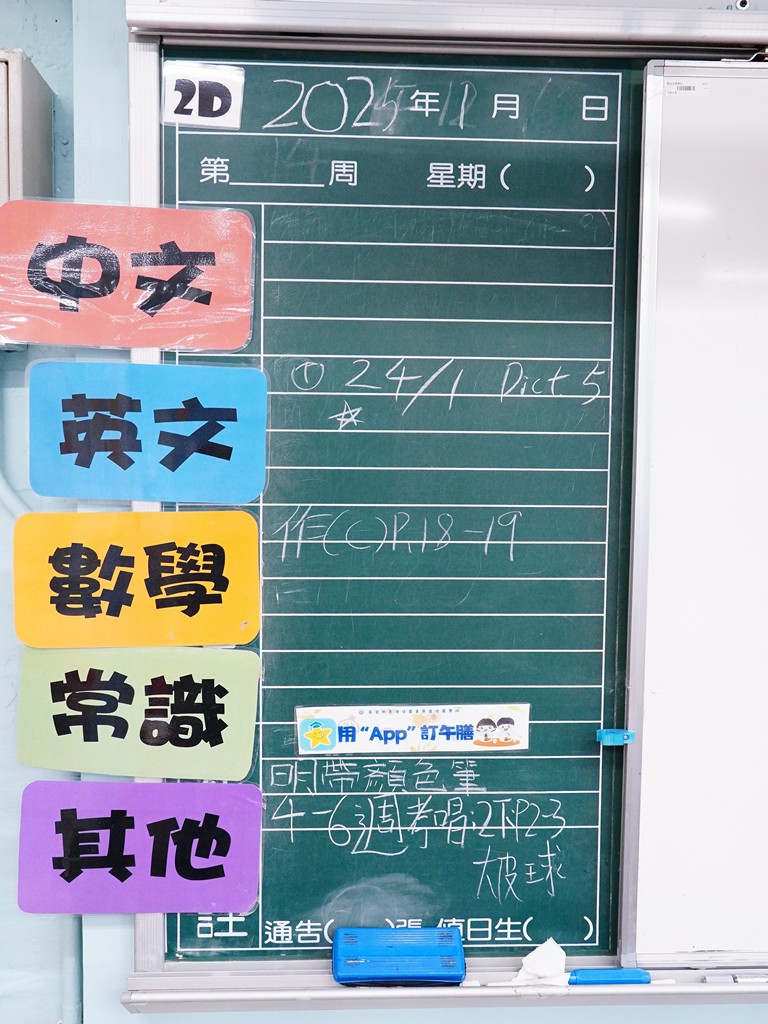 2D 2025年 月 日
第 周 星期( )
中文
英文
① 24/1 Dict. 5
☆
數學
作(C)P.18-19
常識
用“App”訂午膳
其他
明帶顏色筆
4-6週考唱:2下P2-3
大皮球
註 通告( )張 值日生( )